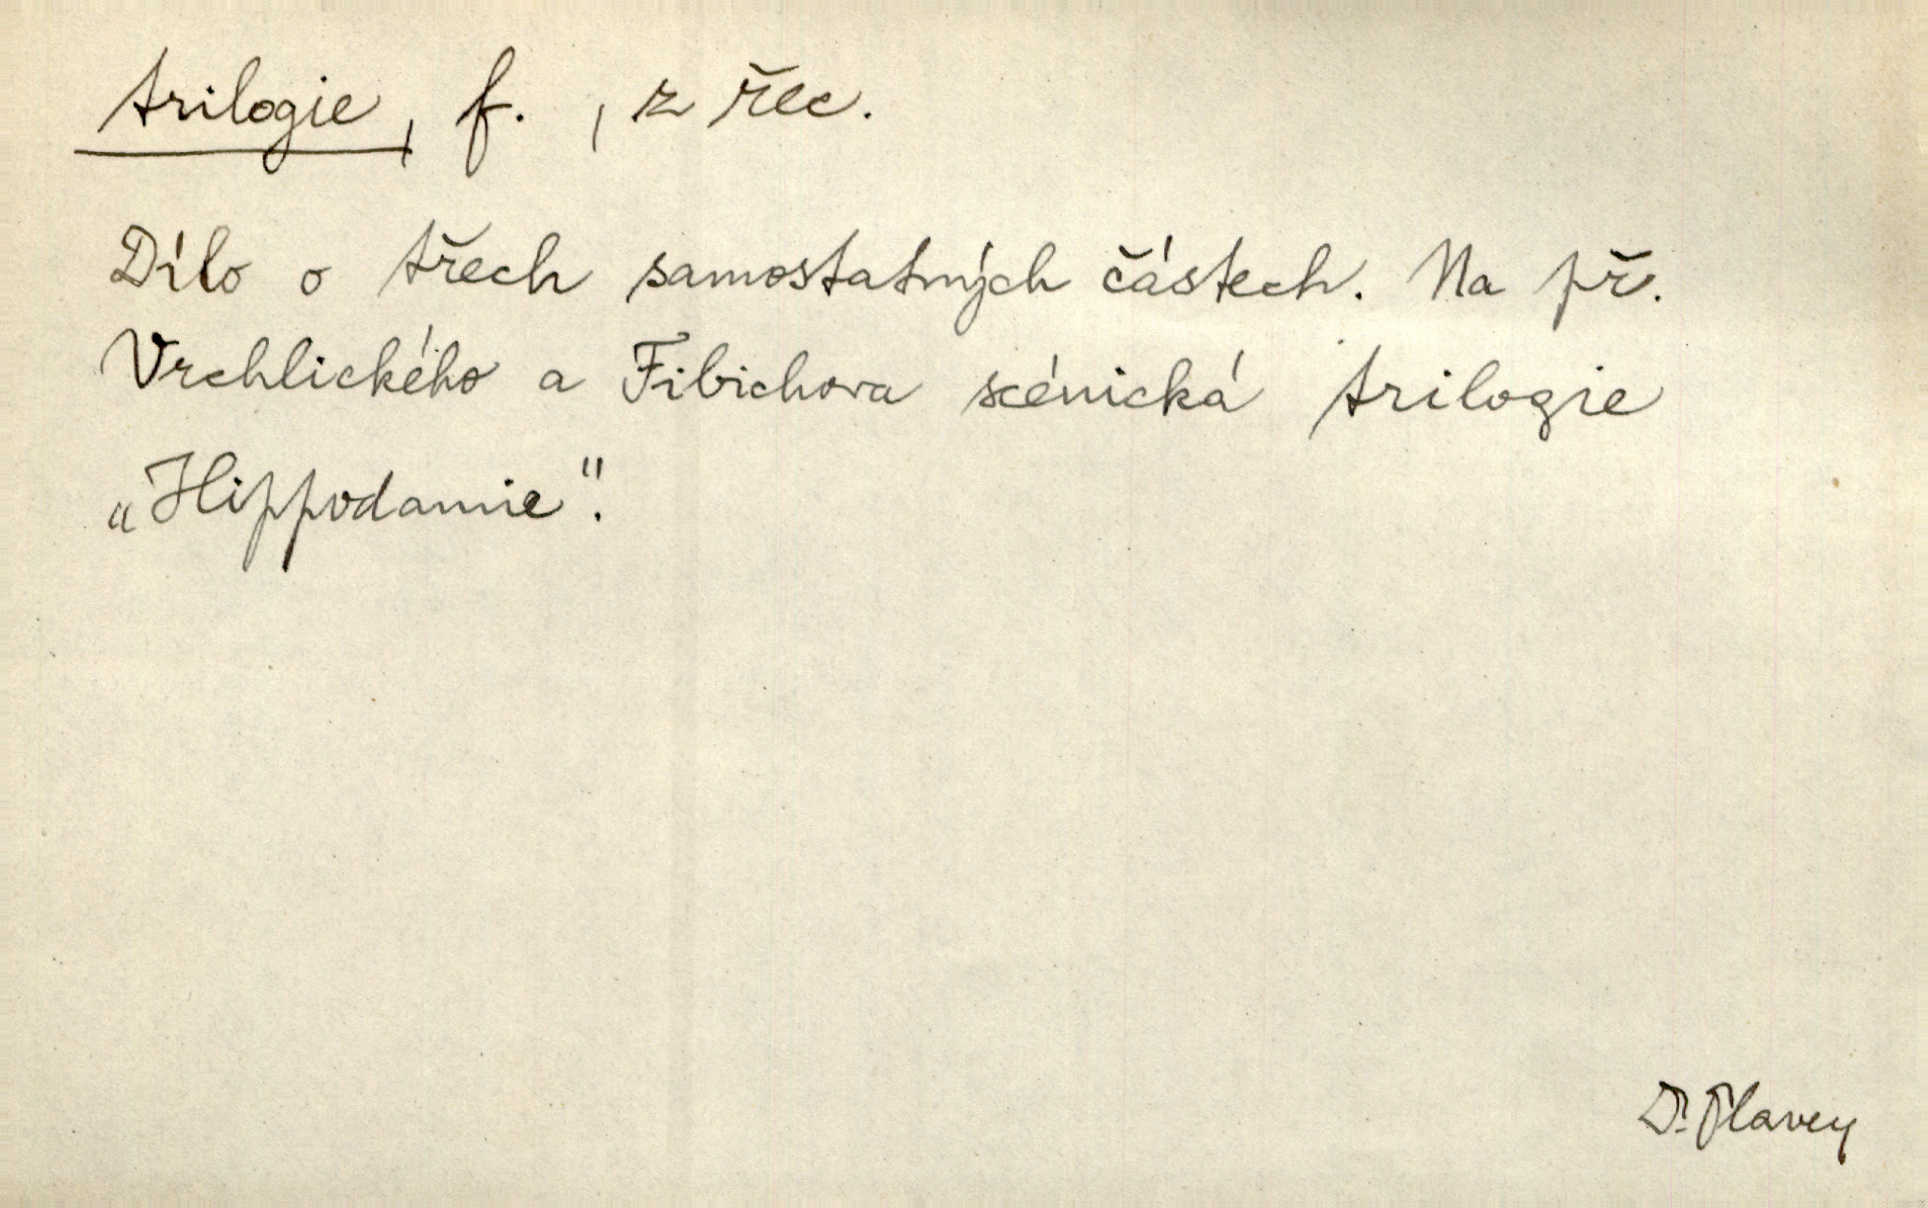 trilogie, f. , z řec.
Dílo o třech samostatných částech. Na př.
Vrchlického a Fibichova scénická trilogie
„Hippodamie".
Dr. Plavec